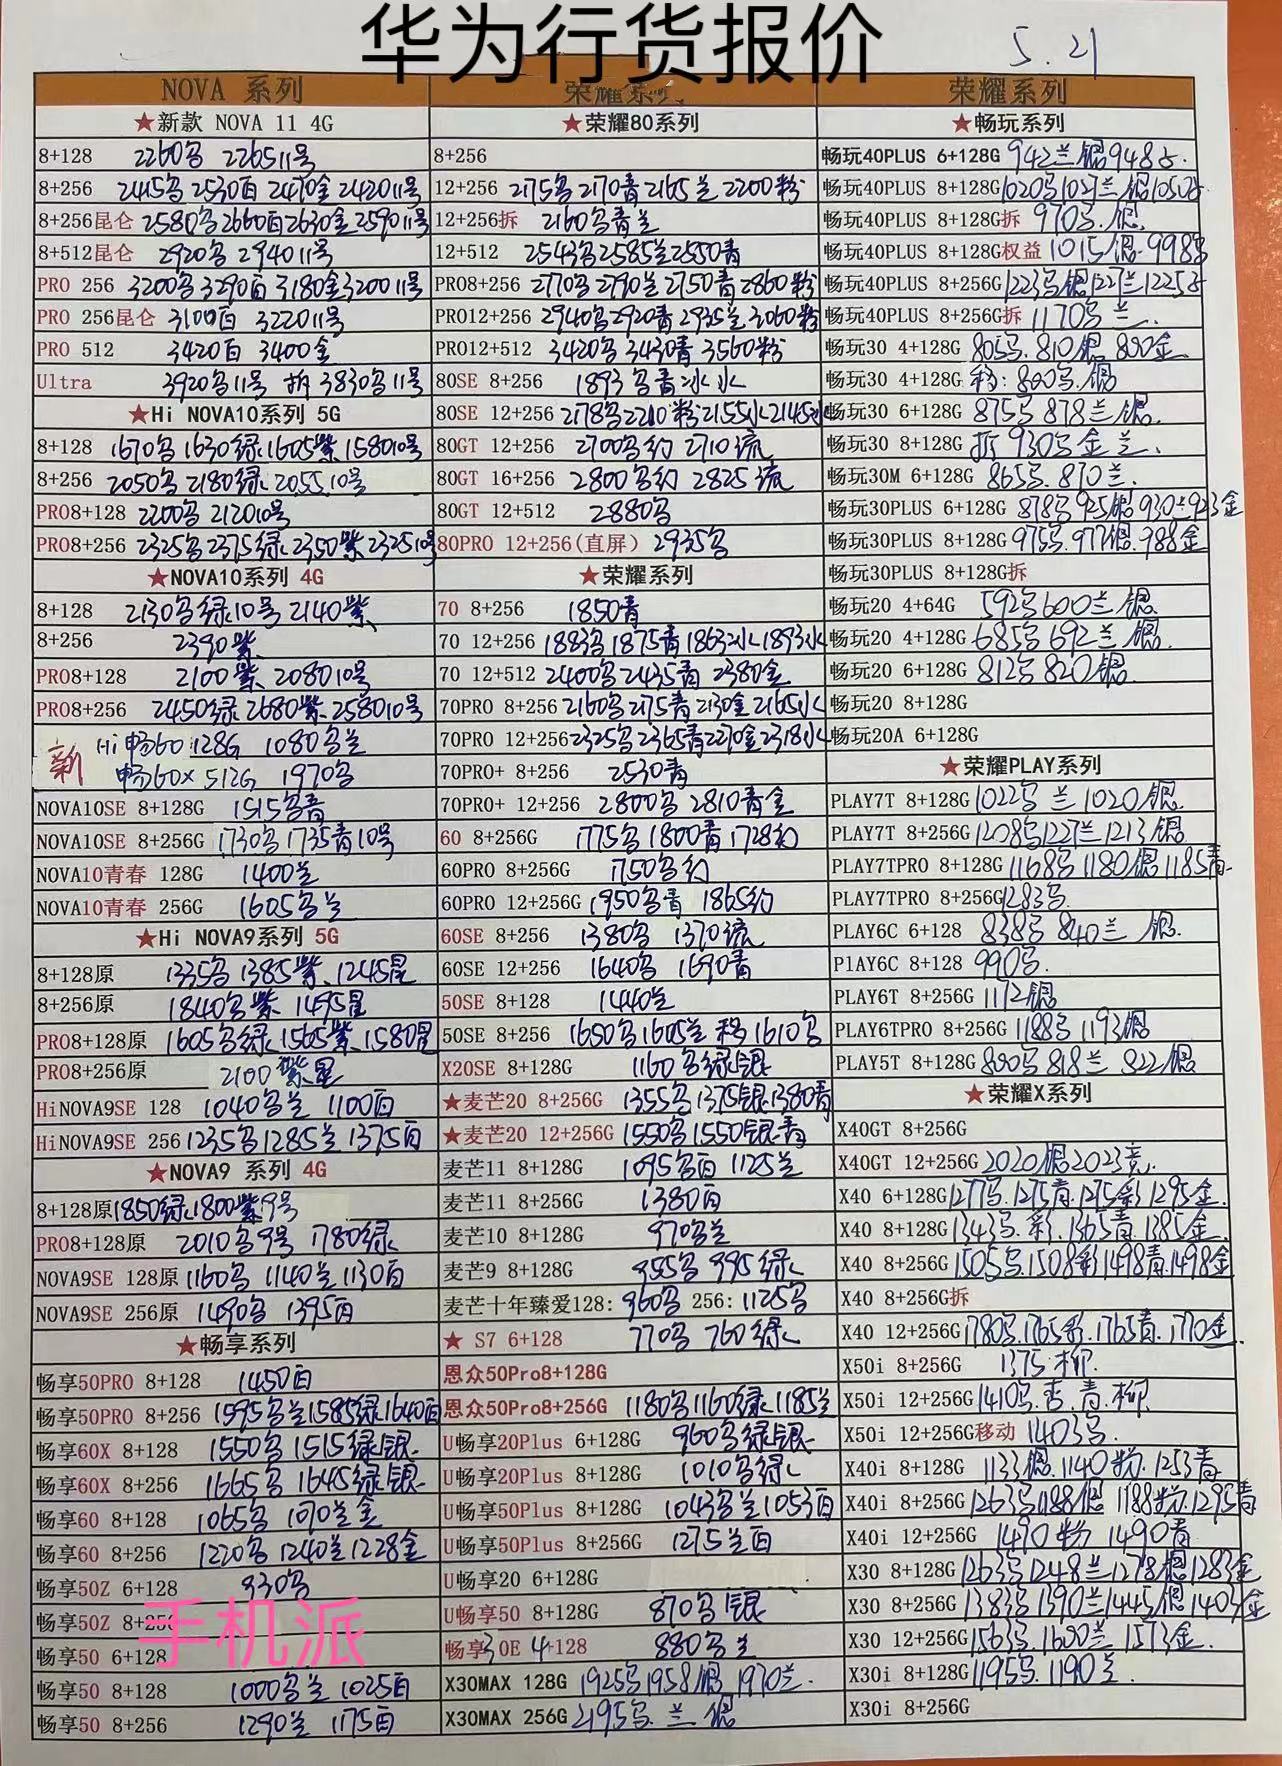 华为行货报价
5.21
NOVA 系列
★新款 NOVA 11 4G
8+128 2260乌 2265 11号
8+256 2445乌 2530白 2470金 2420 11号
8+256昆仑 2580乌 2660白 2630金 2590 11号
8+512昆仑 2920乌 2940 11号
PRO 256 3200乌 3290白 3180金 3200 11号
PRO 256昆仑 3100白 3220 11号
PRO 512 3420白 3400金
Ultra 3920乌 11号 拆 3830乌 11号
★Hi NOVA10系列 5G
8+128 1670乌 1630绿 1605紫 1580 10号
8+256 2050乌 2180绿 2055 10号
PRO8+128 2200乌 2120 10号
PRO8+256 2325乌 2375绿 2350紫 2325 10号
★NOVA10系列 4G
8+128 2130乌绿10号 2140紫
8+256 2390紫
PRO8+128 2100紫 2080 10号
PRO8+256 2450绿 2680紫 2580 10号
新 Hi畅60 128G 1080乌兰
畅60X 512G 1970乌
NOVA10SE 8+128G 1515乌青
NOVA10SE 8+256G 1730乌 1735青10号
NOVA10青春 128G 1400兰
NOVA10青春 256G 1605乌兰
★Hi NOVA9系列 5G
8+128原 1335乌 1385紫 1245星
8+256原 1840乌紫 1495星
PRO8+128原 1605乌绿 1565紫 1580星
PRO8+256原 2100紫星
HiNOVA9SE 128 1040乌兰 1100白
HiNOVA9SE 256 1235乌 1285兰 1375白
★NOVA9 系列 4G
8+128原 1850绿 1800紫9号
PRO8+128原 2010乌9号 1780绿
NOVA9SE 128原 1160乌 1140兰 1130白
NOVA9SE 256原 1490乌 1395白
★畅享系列
畅享50PRO 8+128 1450白
畅享50PRO 8+256 1595乌兰 1585绿 1640白
畅享60X 8+128 1550乌 1515绿银
畅享60X 8+256 1665乌 1645绿银
畅享60 8+128 1065乌 1070兰金
畅享60 8+256 1220乌 1240兰 1228金
畅享50Z 6+128 830乌
畅享50Z 8+256
手机派
畅享50 6+128
畅享50 8+128 1000乌兰 1025白
畅享50 8+256 1290兰 1175白
荣耀系列
★荣耀80系列
8+256
12+256 2175乌 2170青 2165兰 2200粉
12+256拆 2160乌青兰
12+512 2543乌 2585兰 2550青
PRO8+256 2770乌 2790兰 2750青 2860粉
PRO12+256 2940乌 2920青 2935兰 3060粉
PRO12+512 3420乌 3430青 3560粉
80SE 8+256 1893乌青冰水
80SE 12+256 2178乌 2210粉 2155水 2145冰
80GT 12+256 2700乌约 2710流
80GT 16+256 2800乌约 2825流
80GT 12+512 2880乌
80PRO 12+256(直屏) 2935乌
★荣耀系列
70 8+256 1850青
70 12+256 1883乌 1875青 1863冰 1893水
70 12+512 2400乌 2435青 2380金
70PRO 8+256 2160乌 2175青 2130金 2165水
70PRO 12+256 2325乌 2365青 2270金 2318水
70PRO+ 8+256 2530青
70PRO+ 12+256 2800乌 2810青金
60 8+256G 1775乌 1800青 1728约
60PRO 8+256G 1750乌约
60PRO 12+256G 1950乌青 1865约
60SE 8+256 1380乌 1370流
60SE 12+256 1640乌 1690青
50SE 8+128 1440兰
50SE 8+256 1650乌 1605兰 移1610乌
X20SE 8+128G 1160乌绿银
★麦芒20 8+256G 1355乌 1375银 1380青
★麦芒20 12+256G 1550乌 1550银青
麦芒11 8+128G 1095乌白 1125兰
麦芒11 8+256G 1380白
麦芒10 8+128G 970乌兰
麦芒9 8+128G 955乌 995绿
麦芒十年臻爱128: 960乌 256: 1125乌
★ S7 6+128 770乌 760绿
恩众50Pro8+128G
恩众50Pro8+256G 1180乌 1160绿 1185兰
U畅享20Plus 6+128G 960乌绿银
U畅享20Plus 8+128G 1010乌绿
U畅享50Plus 8+128G 1043乌兰 1053白
U畅享50Plus 8+256G 1275兰白
U畅享20 6+128G
U畅享50 8+128G 870乌银
畅享30E 4+128 880乌兰
X30MAX 128G 1925乌 1958银 1970兰
X30MAX 256G 2195乌.兰 银
荣耀系列
★畅玩系列
畅玩40PLUS 6+128G 942兰银948乌
畅玩40PLUS 8+128G 1020乌1027兰 银105
畅玩40PLUS 8+128G拆 970乌.银
畅玩40PLUS 8+128G权益 1015银.998乌
畅玩40PLUS 8+256G 1223乌银1227兰1225
畅玩40PLUS 8+256G拆 1170乌兰
畅玩30 4+128G 805乌.810银 800金
畅玩30 4+128G 移: 860乌.银
畅玩30 6+128G 875乌 878兰银
畅玩30 8+128G 拆 930乌金兰
畅玩30M 6+128G 865乌.870兰
畅玩30PLUS 6+128G 878乌925银930兰923金
畅玩30PLUS 8+128G 975乌.977银.988金
畅玩30PLUS 8+128G拆
畅玩20 4+64G 592乌600兰银
畅玩20 4+128G 685乌692兰银
畅玩20 6+128G 812乌 820银
畅玩20 8+128G
畅玩20A 6+128G
★荣耀PLAY系列
PLAY7T 8+128G 1022乌兰 1020银
PLAY7T 8+256G 1208乌1227兰1213银
PLAY7TPRO 8+128G 1168乌1180银1185青
PLAY7TPRO 8+256G 1283乌
PLAY6C 6+128 838乌 840兰 银
PlAY6C 8+128 990乌
PLAY6T 8+256G 1172银
PLAY6TPRO 8+256G 1188乌 1193银
PLAY5T 8+128G 800乌818兰 822银
★荣耀X系列
X40GT 8+256G
X40GT 12+256G 2020银2023竞
X40 6+128G 1277乌.1275青.1275彩1295金
X40 8+128G 1343乌.彩.1365青.1385金
X40 8+256G 1505乌.1508彩1498青.1498金
X40 8+256G拆
X40 12+256G 1780乌.1765彩.1765青.1770金
X50i 8+256G 1375柳
X50i 12+256G 1410乌.杏.青.柳
X50i 12+256G移动 1403乌
X40i 8+128G 1133银.1140粉.1253青
X40i 8+256G 1263乌1188银 1188粉.1295青
X40i 12+256G 1490粉 1490青
X30 8+128G 1263乌1248兰1278银1283金
X30 8+256G 1383乌1390兰1445银1405金
X30 12+256G 1563乌.1600兰1573金
X30i 8+128G 1195乌.1190兰
X30i 8+256G